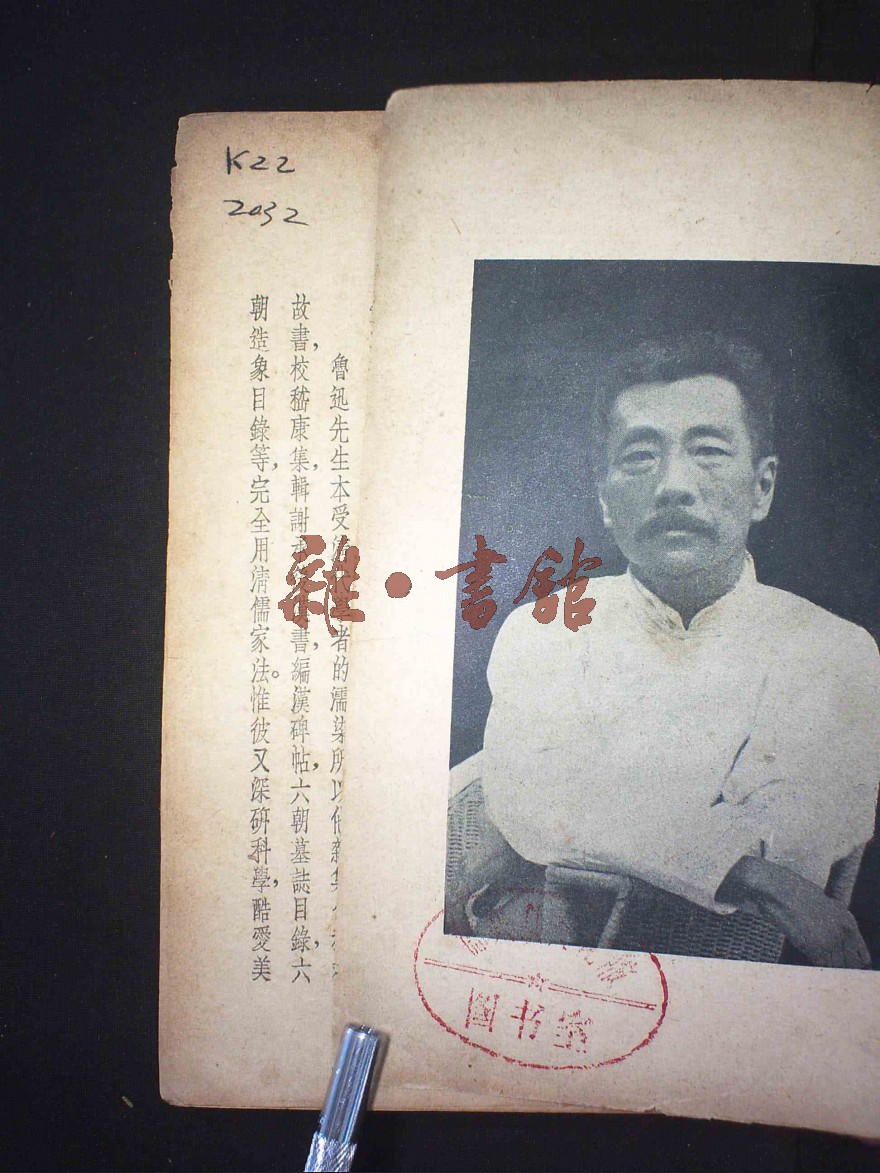 K22
2032
魯迅先生本受 者的濡染所以他雜集
故書,校嵇康集,輯謝 書,編漢碑帖,六朝墓誌目錄,六
朝造象目錄等,完全用淸儒家法。惟彼又深硏科學,酷愛美
雜·書館
图书室